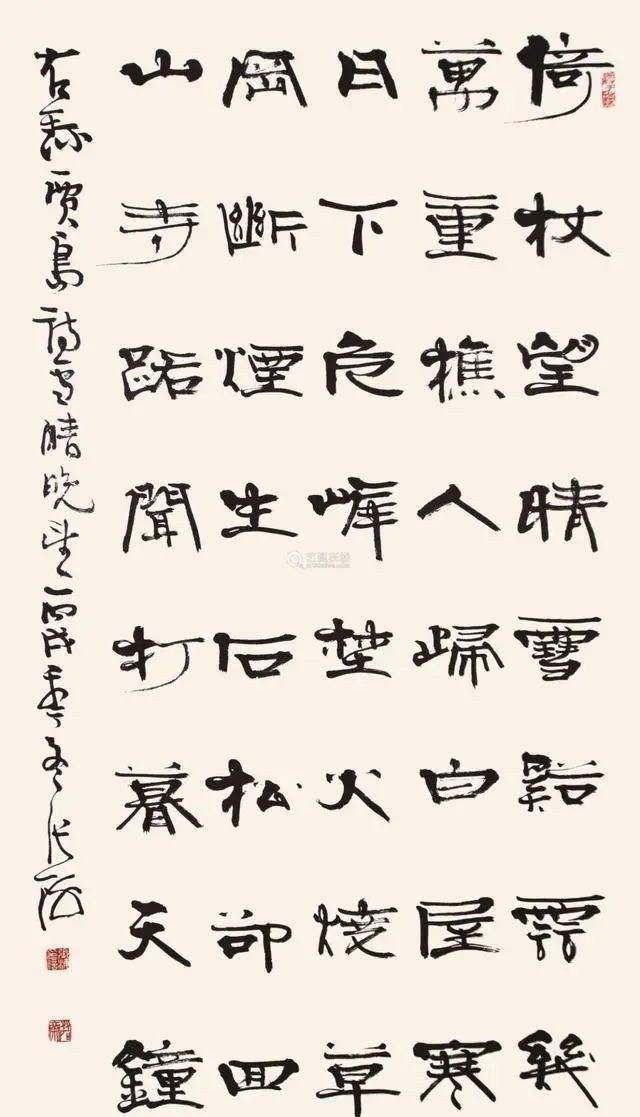 倚杖望晴雪谿雲幾
萬重樵人歸白屋寒
日下危峰埜火燒草
岡斷煙生石松卻回
山寺路聞打暮天鐘
右録賈島詩雪晴晚望丙戌冬張海